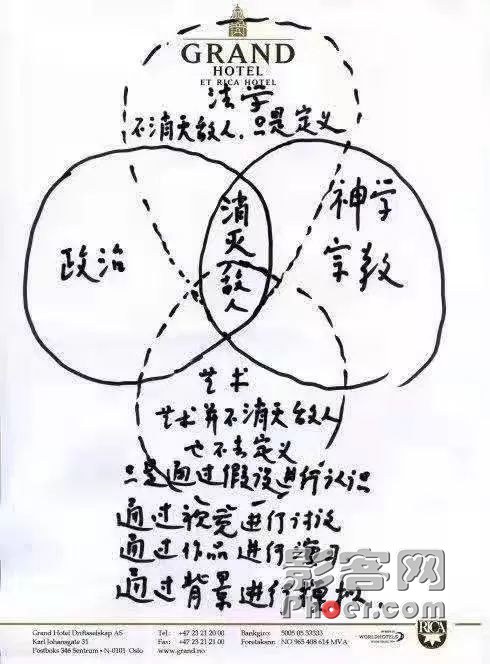 GRAND
HOTEL
ET RICA HOTEL
法学
不消灭敌人，只是定义
政治
消灭敌人
神学
宗教
艺术
艺术并不消灭敌人
也不去定义
只是通过假设进行认识
通过视觉进行讨论
通过作品进行演习
通过背景进行模拟.
影客网
Phoer.com
Grand Hotel Driftsselskap AS
Karl Johansgate 31
Postboks 346 Sentrum • N-0101 Oslo
Tel.: +47 23 21 20 00
Fax: +47 23 21 21 00
www.grand.no
Bankgiro: 5005 05 53333
Foretaksnr.: NO 965 408 614 MVA
WORLDHOTELS
RICA